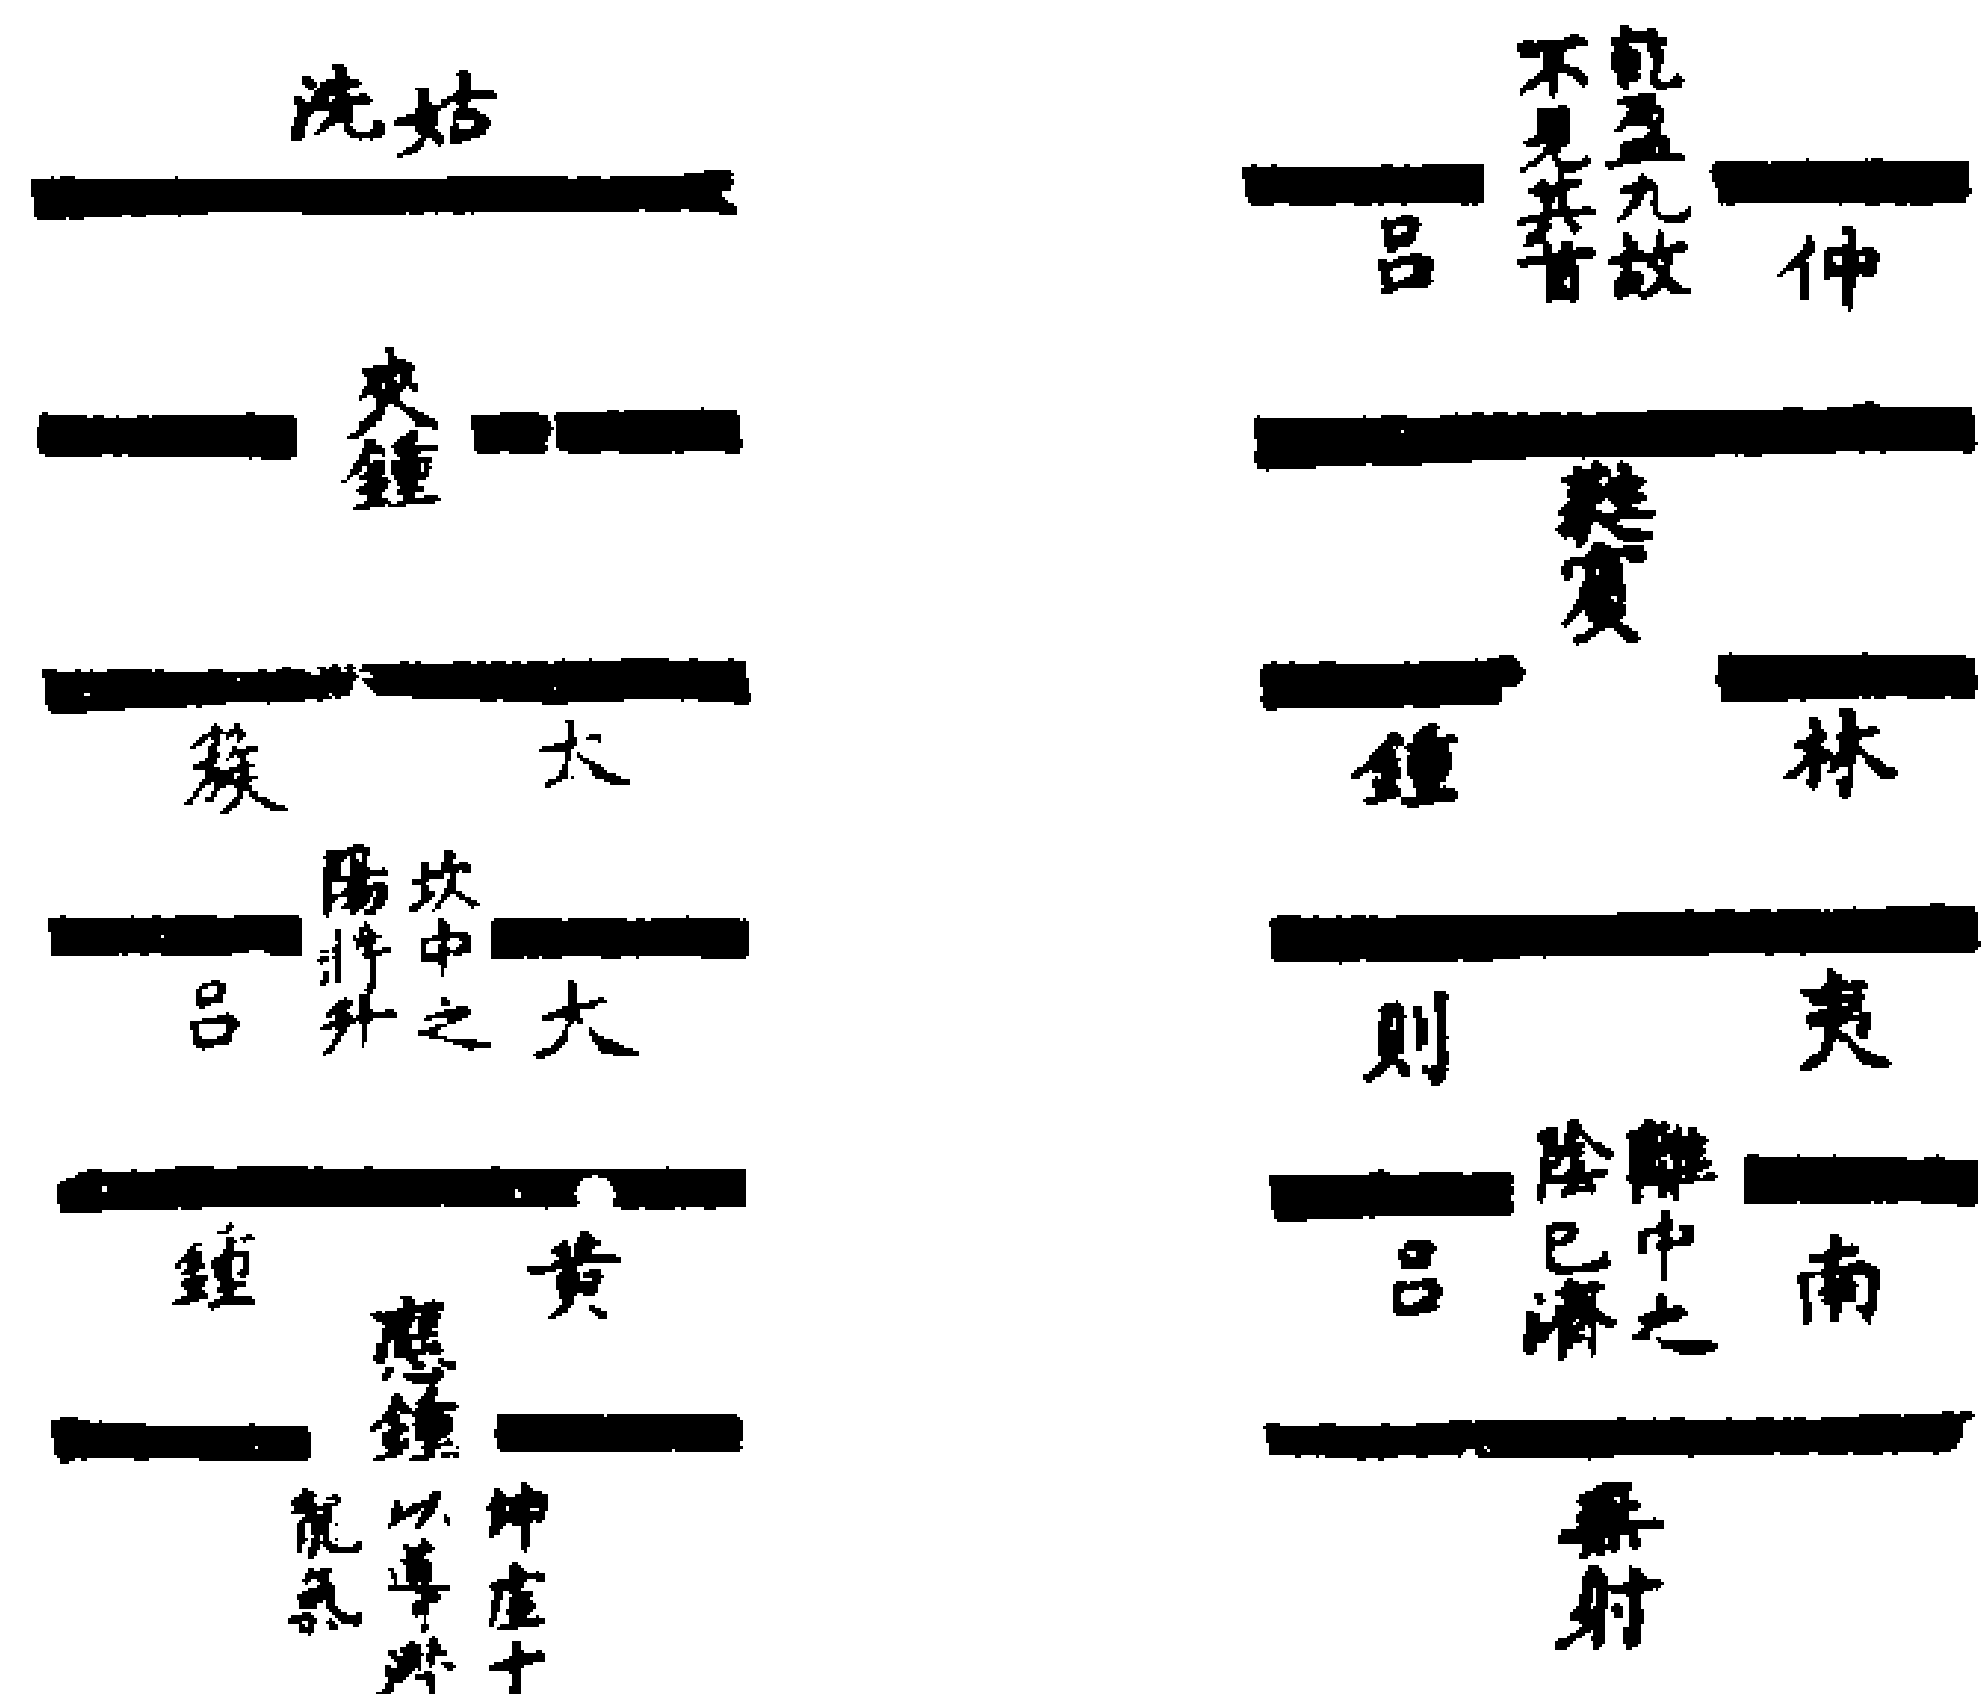 仲呂
乾盈九故
不見其首
蕤賓
林鍾
夷則
南呂
離中之
陰已濟
無射
姑洗
夾鍾
太蔟
大呂
坎中之
陽將升
黃鍾
應鍾
坤虛十
以導
氣